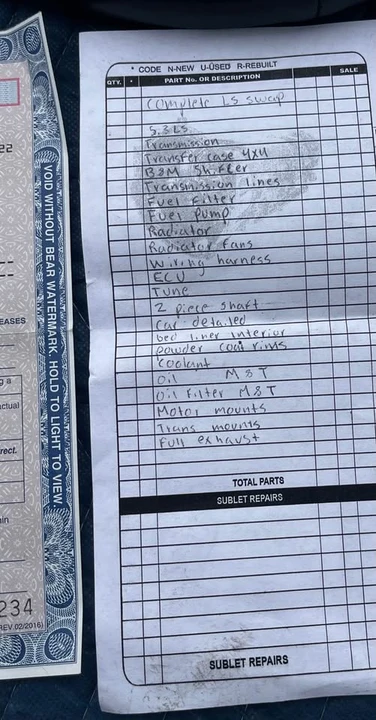 22
EASES
g a
ctual
rect.
in
234
REV.02/2016)
VOID WITHOUT BEAR WATERMARK. HOLD TO LIGHT TO VIEW
* CODE N-NEW U-USED R-REBUILT
QTY. * PART No. OR DESCRIPTION SALE
Complete LS swap
5.3 LS
Transmission
Transfer case 4x4
B&M Shifter
Transmission lines
Fuel Filter
Fuel Pump
Radiator
Radiator fans
Wiring harness
ECU
Tune
2 piece shaft
Car detailed
bed liner interior
powder coat rims
Coolant
Oil M&T
Oil Filter M&T
Motor mounts
Trans mounts
Full exhaust
TOTAL PARTS
SUBLET REPAIRS
SUBLET REPAIRS